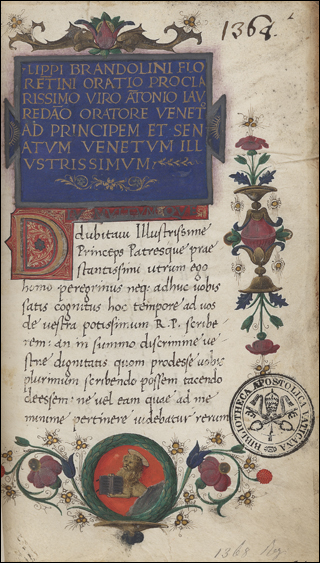 1364
·LIPPI BRANDOLINI FLO
RETINI ORATIO PROCLA
RISSIMO VIRO ATONIO LAV
REDAO ORATORE VENET
AD PRINCIPEM ET SEN
ATVM VENETVM ILL
VSTRISSIMVM
Dubitaui Illustrissime
Princeps Patresque prae
stantissimi utrum ego
homo peregrinus neq; adhuc uobis
satis cognitus hoc tempore ad uos
de uestra potissimum R. P. scribe
rem: an in summo discrimine ue
stre dignitatis quom prodesse uobis
plurimum scribendo possem tacendo
deessem: ne uel eam quae ad me
minime pertinere uidebatur rerum
BIBLIOTHECA APOSTOLICA VATICANA
1368